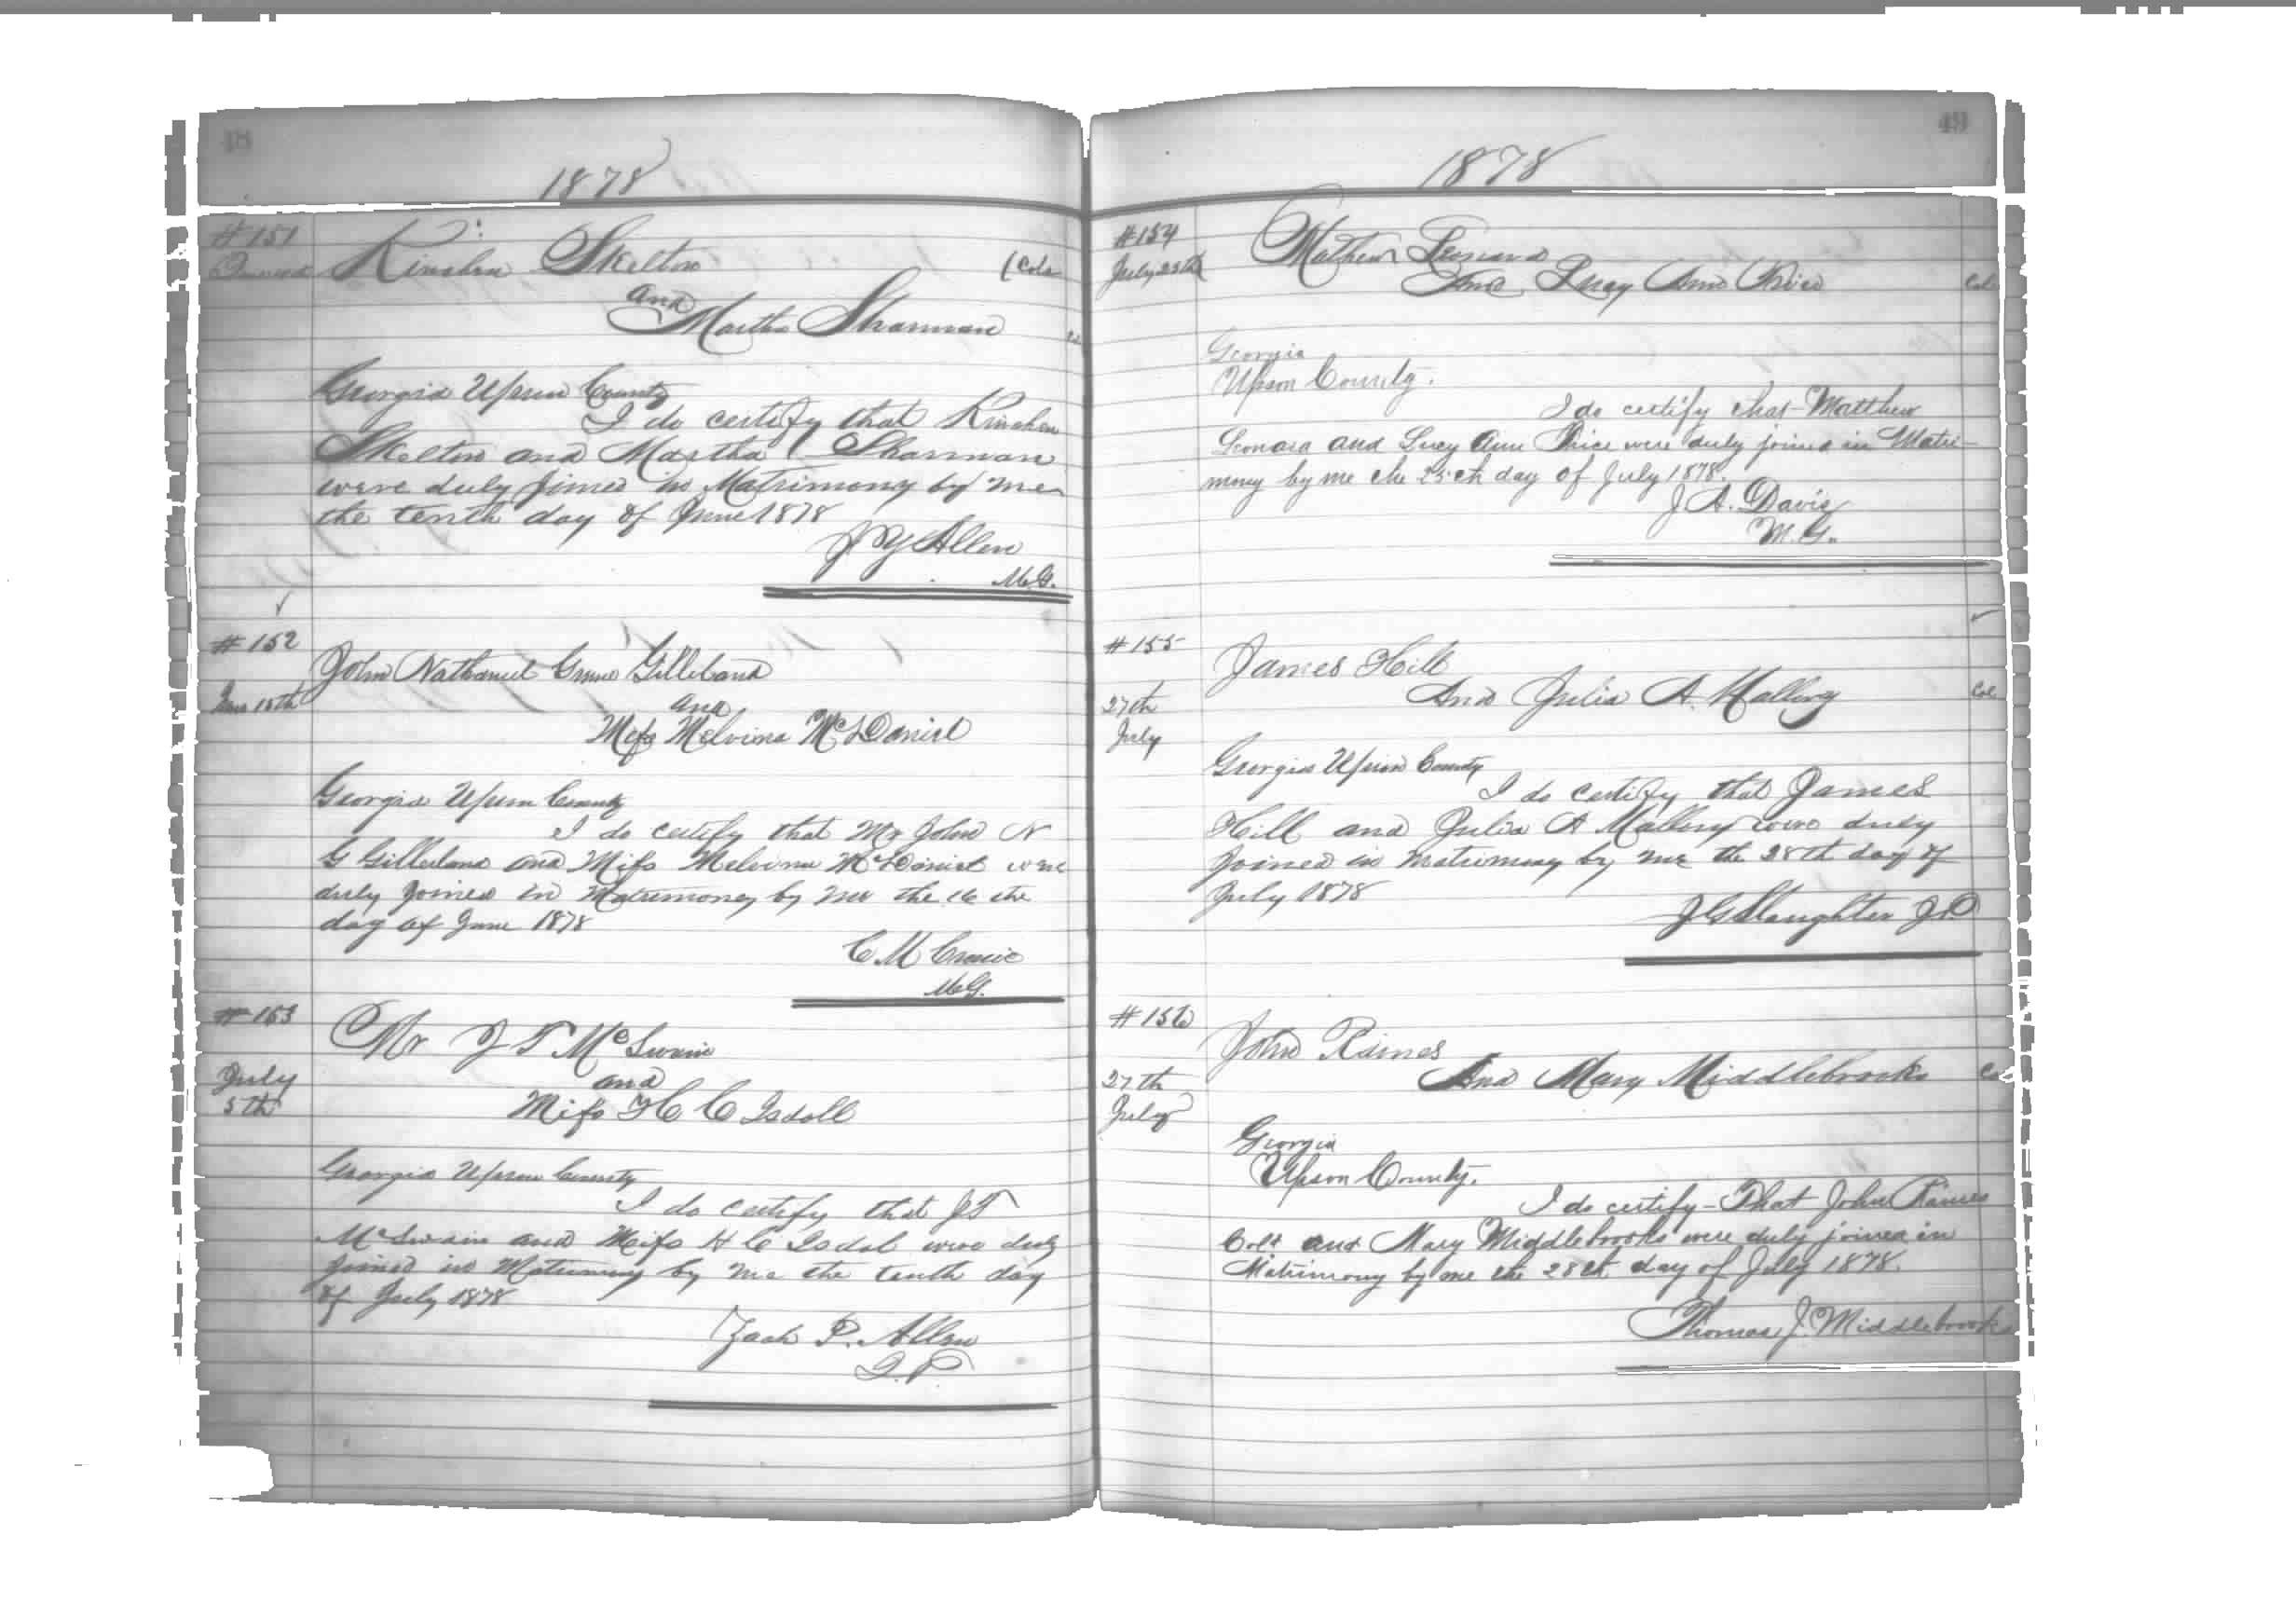 48
1878
#151
Kinchen Skelton (Col
and
Martha Sharman
Georgia Upson County
I do certify that Kinchen
Skelton and Martha Sharman
were duly joined in Matrimony by me
the tenth day of June 1878
J Y Allen
M.G.
#152
John Nathaniel Gilleland
June 15th
and
Miss Melvina McDaniel
Georgia Upson County
I do certify that Mr John N
G Gilleland and Miss Melvina McDaniel were
duly joined in Matrimoney by me the 16 the
day of June 1878
C M
M.G.
#153
Mr J T McSwain
July
5th
and
Miss H C Isdoll
Georgia Upson County
I do certify that J T
McSwain and Miss H C Isdol were duly
joined in Matrimony by me the tenth day
of July 1878
Zach P. Allen
J.P.
49
1878
#154
July 25th
Mathew Leonard
And Lucy Ann Price Col
Georgia
Upson County.
I do certify that Matthew
Leonard and Lucy Ann Price were duly joined in Matri-
mony by me the 25th day of July 1878.
J. A. Davis
M.G.
#155
James Hill
27th
July
And Julia A. Mallory Col
Georgia Upson County
I do certify that James
Hill and Julia A Mallory were duly
joined in matrimony by me the 28th day of
July 1878
J G Slaughter J.P
#156
John Raines
27th
July
And Mary Middlebrooks Col
Georgia
Upson County.
I do certify - That John Raines
Cold and Mary Middlebrooks were duly joined in
Matrimony by me the 28th day of July 1878.
Thomas J. Middlebrooks